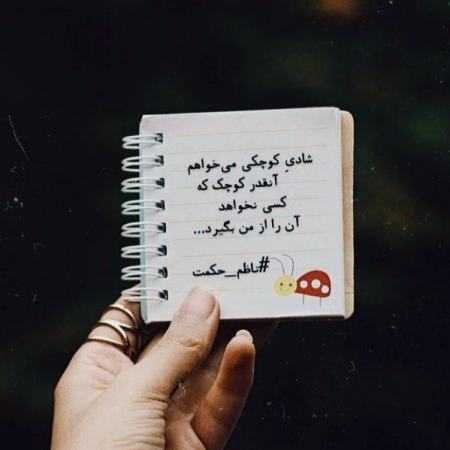 شادیِ کوچکی می‌خواهم
آنقدر کوچک که
کسی نخواهد
آن را از من بگیرد...
#ناظم_حکمت